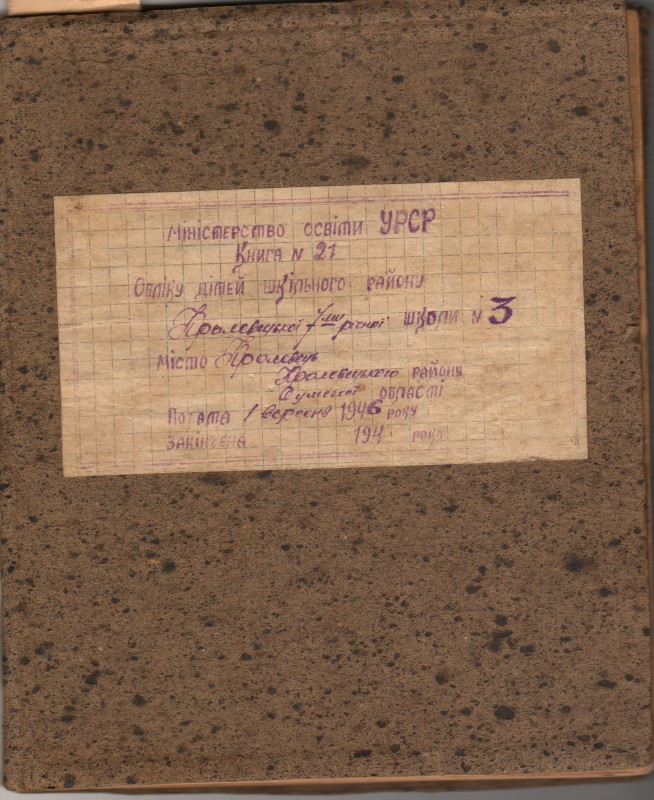 Міністерство освіти УРСР
Книга N 21
Обліку дітей шкільного району
Кролевецької 7ми річної школи N 3
Місто Кролевець
Кролевецького району
Сумської області
Почата 1 вересня 1946 року
Закінчена 194 року